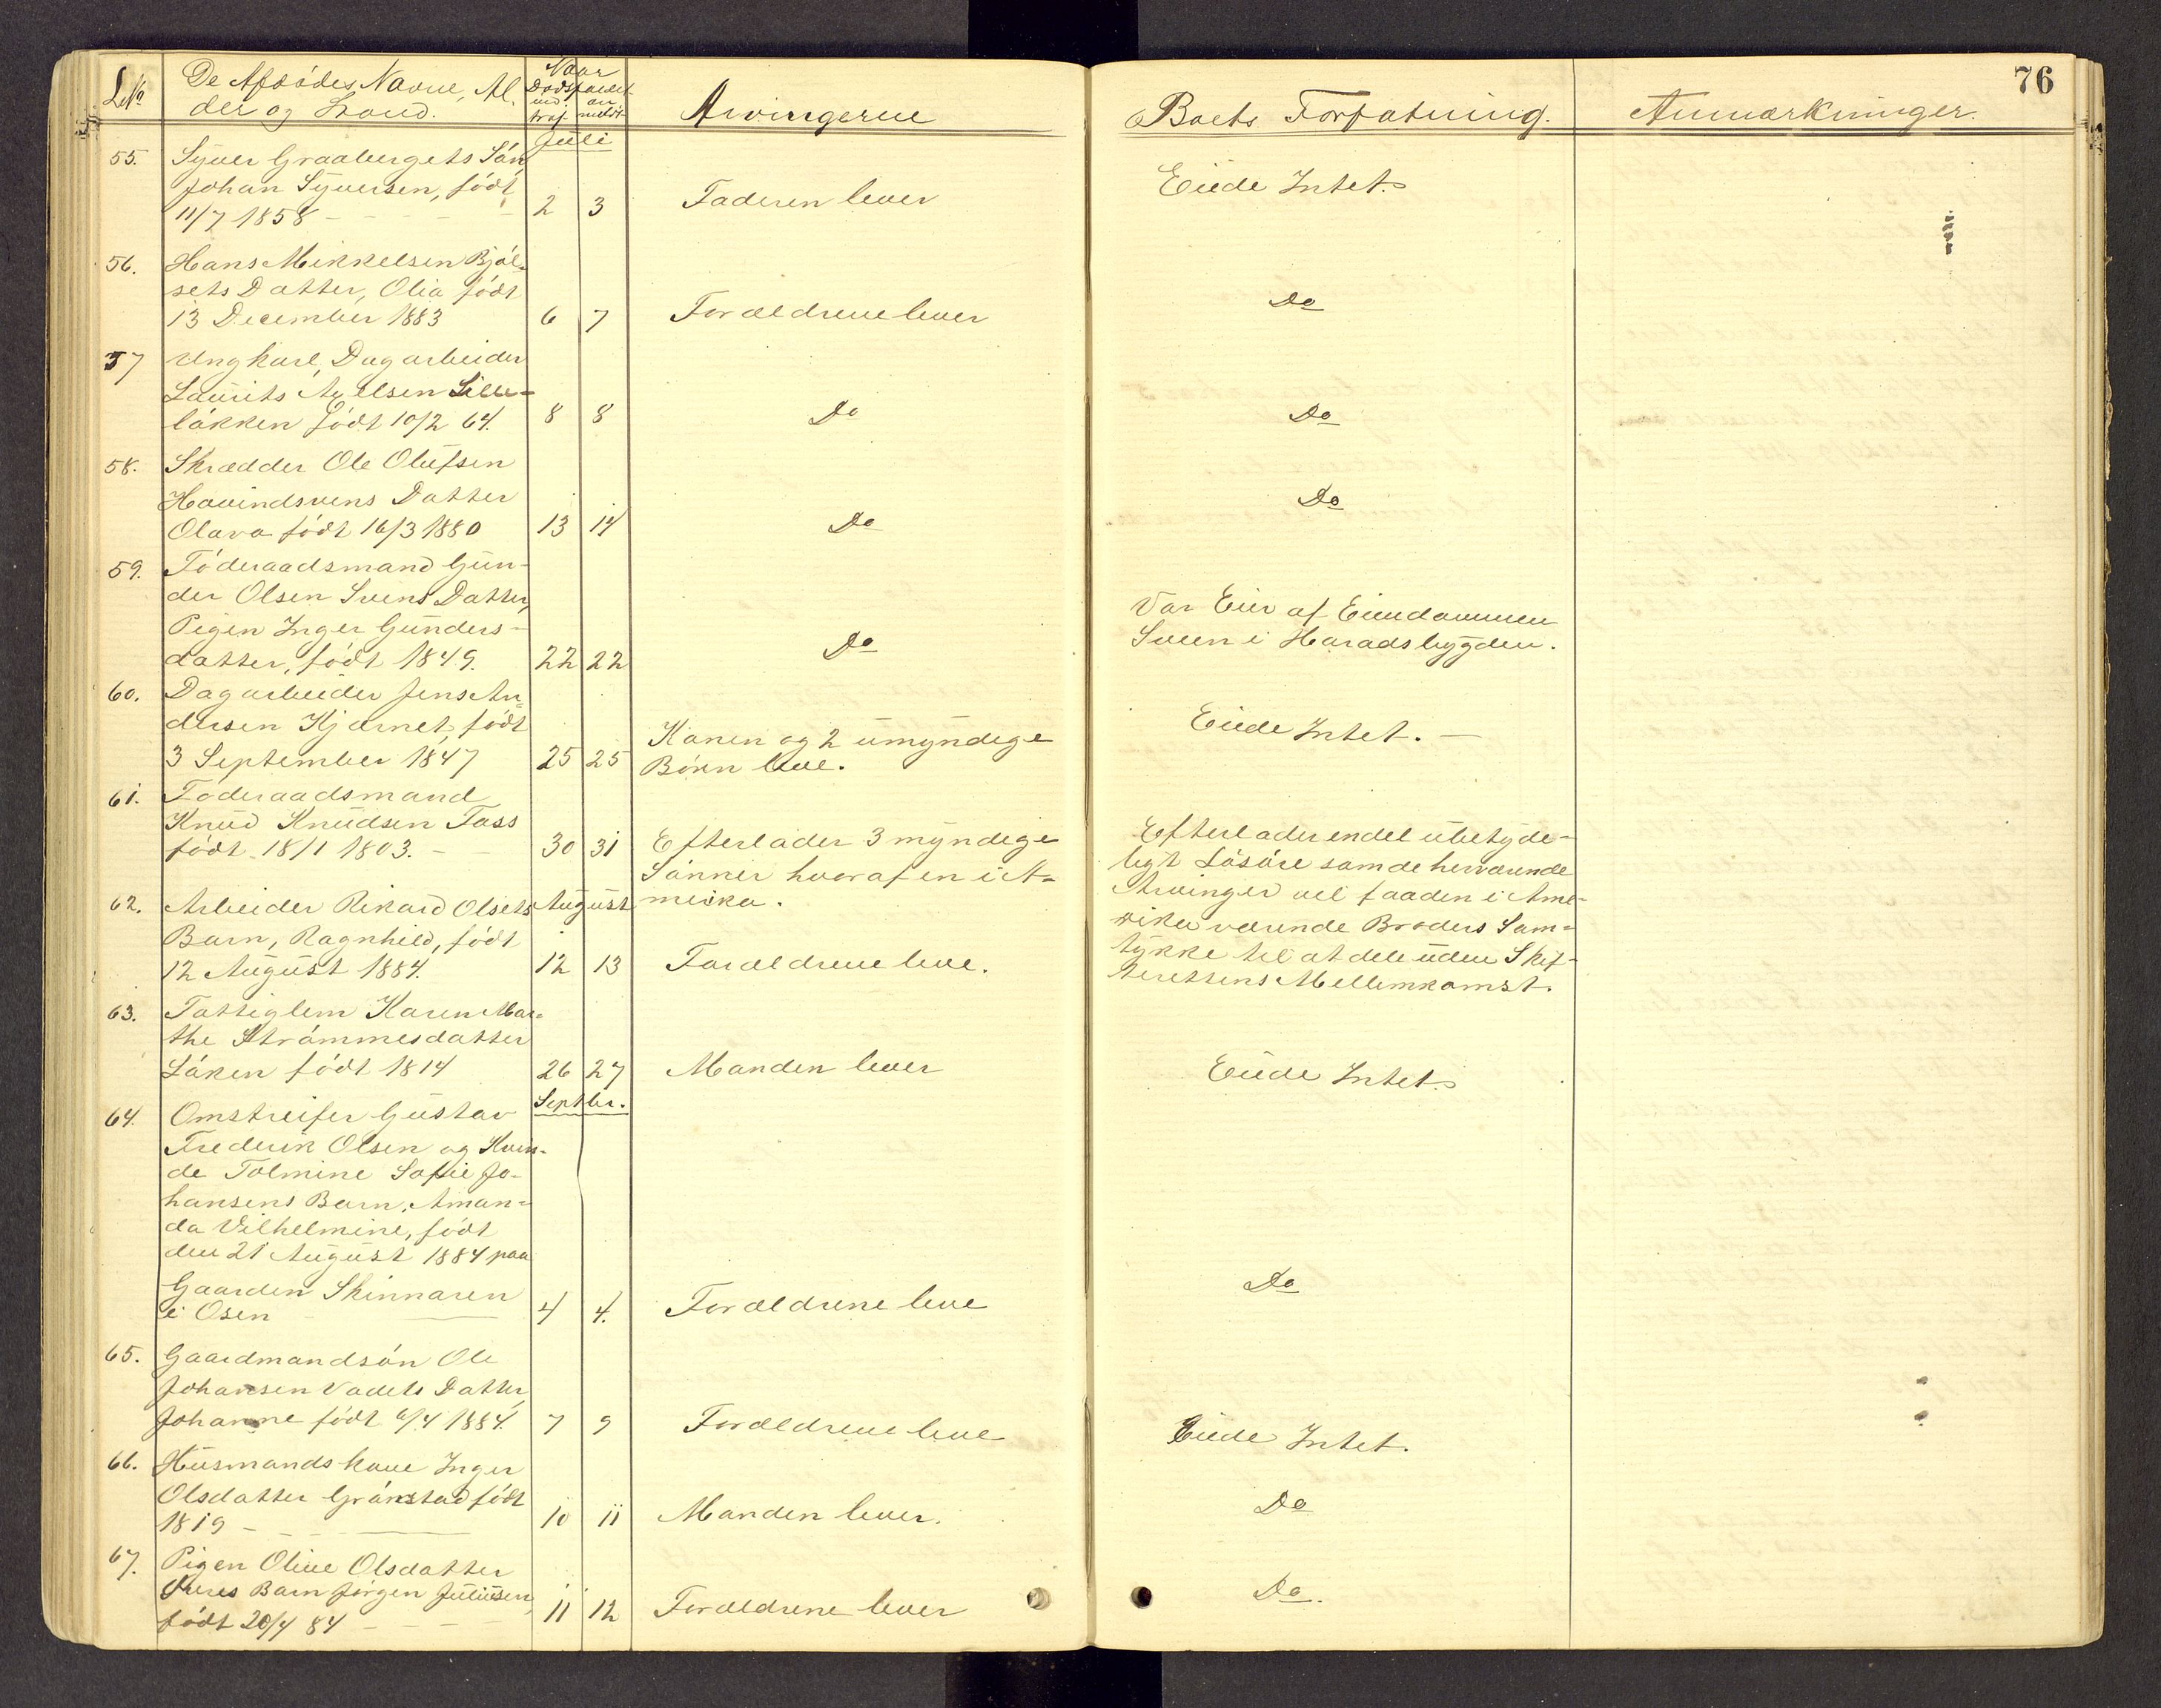 76
LNo
De Afdødes Navne, Al-
der og Stand.
Naar
Dødsfaldet
ind-
traf.
an-
meldt
Arvingerne
Boets Forfatning.
Anmærkninger.
Juli
55.
Syver Graabergets Sön
Johan Syversen, födt
11/7 1858
2
3
Faderen lever
Eiede Intet.
56.
Hans Mikkelsen Bjöl-
sets Datter, Olia födt
13 December 1883
6
7
Forældrene lever
Do
57
Ungkarl, Dagarbeider
Laurits Axelsen Lille-
lökken födt 10/2 64.
8
8
Do
Do
58.
Skrædder Ole Olufsen
Hovindsvens Datter
Olava födt 16/3 1880
13
14
Do
Do
59.
Föderaadsmand Gun-
der Olsen Svens Datter,
Pigen Inger Gunders-
datter, födt 1849.
22
22
Do
Var Eier af Eiendommen
Sveen i Haradsbygden.
60.
Dagarbeider Jens An-
dersen Kjernet, födt
3 September 1847
25
25
Konen og 2 umyndige
Börn leve.
Eiede Intet.
61.
Föderaadsmand
Knud Knudsen Fass
födt 18/1 1803.
30
31
Efterlader 3 myndige
Sönner hvoraf en i A-
merika.
Efterlader endel ubetyde-
ligt Lösöre som de herværende
Arvinger vil faa den i Ame-
rika værende Broders Sam-
tykke til at dele uden Skif-
terettens Mellemkomst.
August
62.
Arbeider Rikard Olsets
Barn, Ragnhild, födt
12 August 1884.
12
13
Forældrene leve.
63.
Fattiglem Karen Mar-
the Strömmesdatter
Löken födt 1814
26
27
Manden lever
Eiede Intet.
Septbr.
64.
Omstreifer Gustav
Frederik Olsen og Kvin-
de Tolmine Sofie Jo-
hansens Barn, Aman-
da Vilhelmine, födt
den 21 August 1884 paa
Gaarden Skinnaren
i Osen
4
4.
Forældrene leve
Do
65.
Gaardmandsön Ole
Johansen Vadets Datter,
Johanne födt 6/4 1884.
7
9
Forældrene leve
Eiede Intet.
66.
Husmandskone Inger
Olsdatter Grönstad födt
1819
10
11
Manden lever.
Do
67.
Pigen Oline Olsdatter
Barn Jørgen Juliussen
födt 20/4 84
11
12
Forældrene lever
Do.